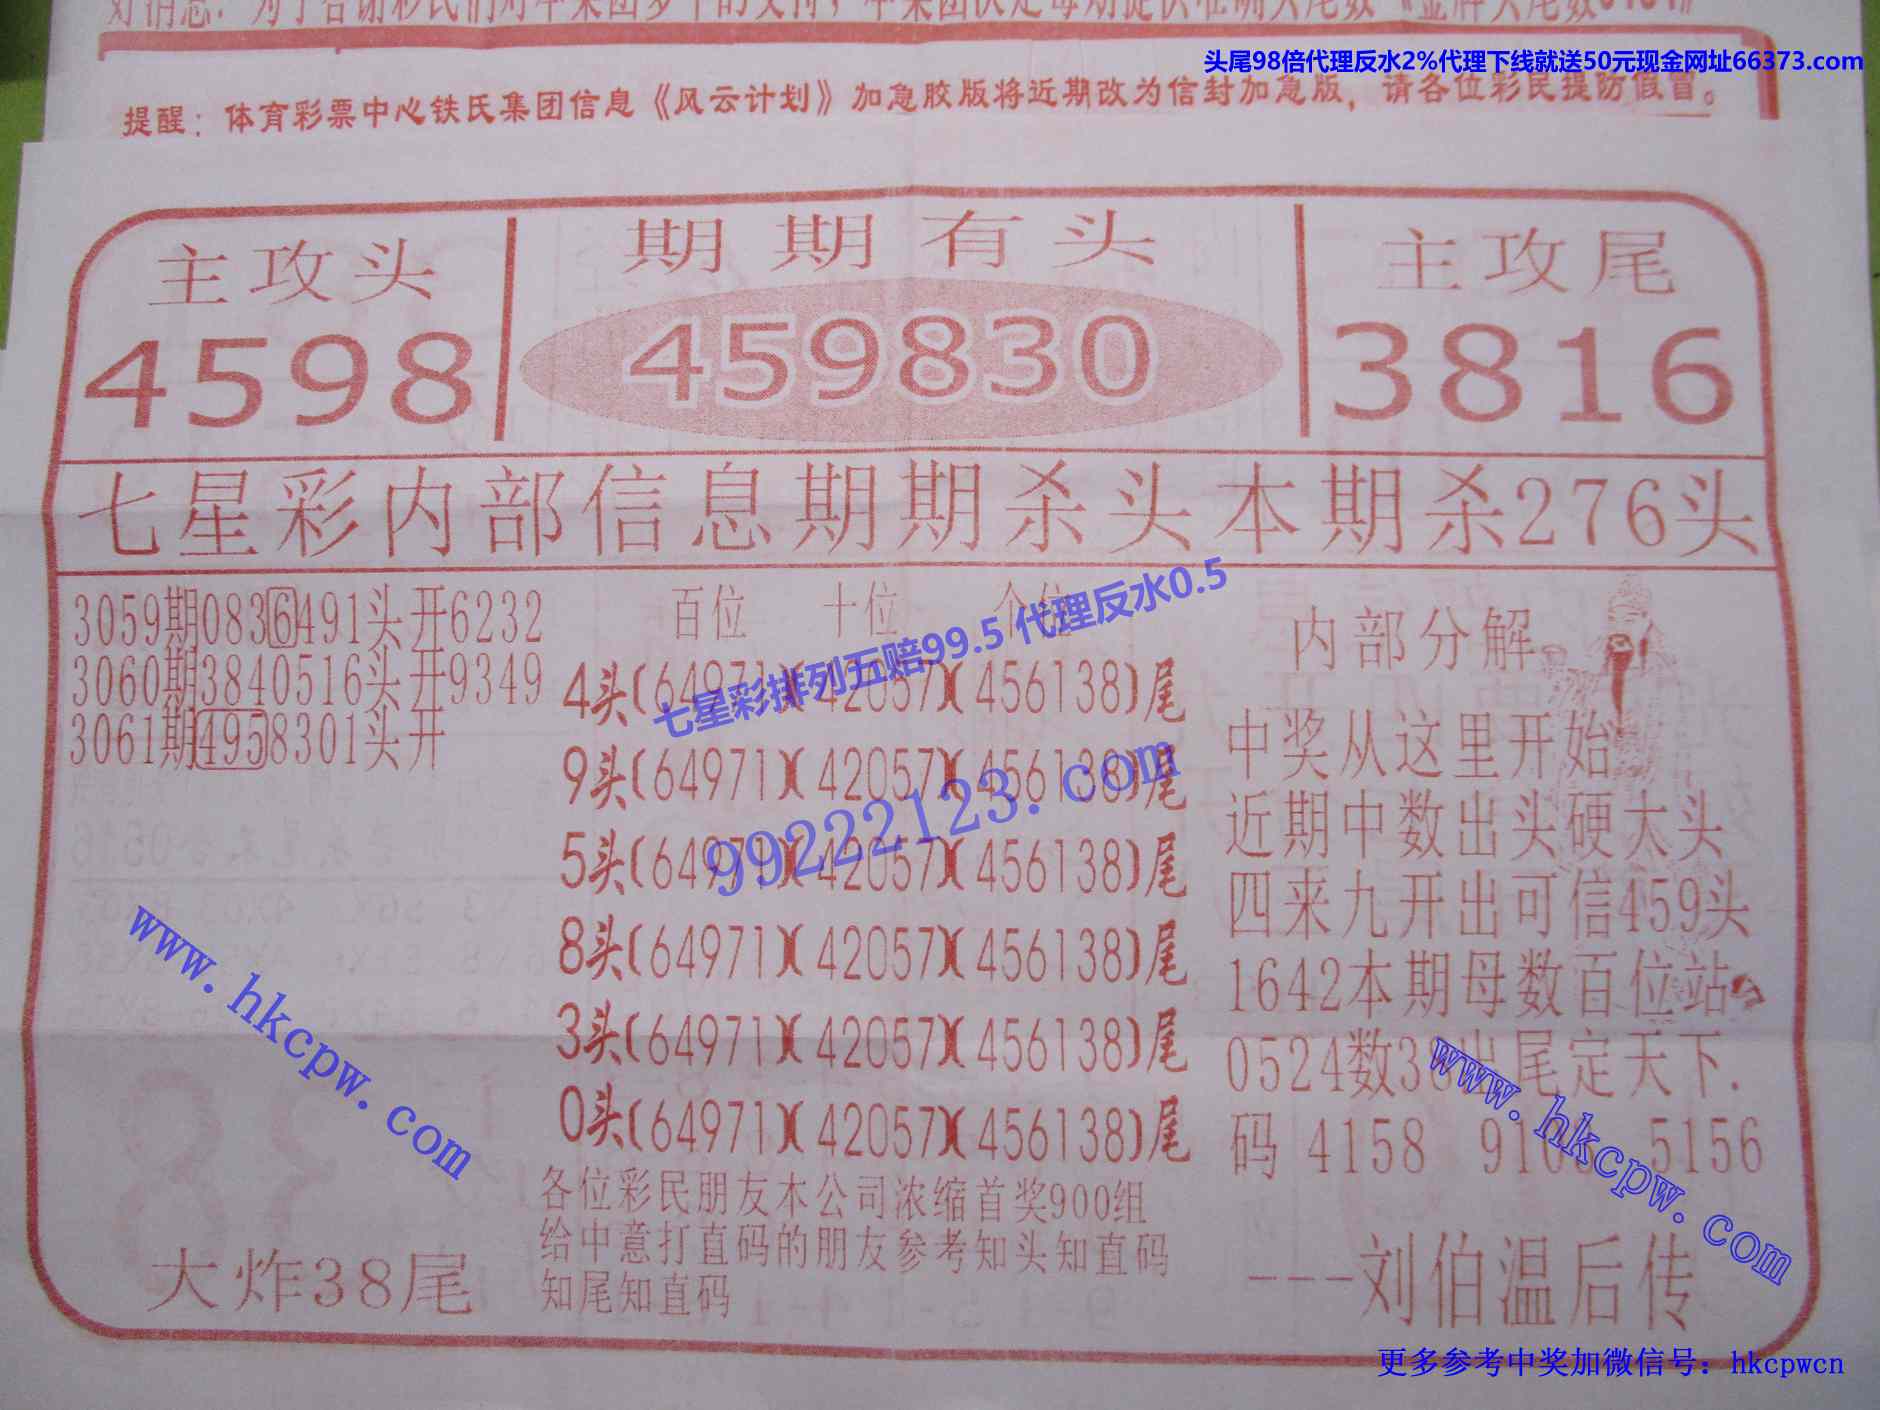 好消息：为了答谢彩民们对本集团多年的支持，本集团决定每期提供准确头尾数《金牌头尾数
头尾98倍代理反水2%代理下线就送50元现金网址66373.com
提醒：体育彩票中心铁氏集团信息《风云计划》加急胶版将近期改为信封加急版，请各位彩民提防假冒。
主攻头
期期有头
主攻尾
4598
459830
3816
七星彩内部信息期期杀头本期杀276头
3059期0836491头开6232
3060期3840516头开9349
3061期4958301头开
百位 十位 个位
4头(64971)(42057)(456138)尾
9头(64971)(42057)(456138)尾
5头(64971)(42057)(456138)尾
8头(64971)(42057)(456138)尾
3头(64971)(42057)(456138)尾
0头(64971)(42057)(456138)尾
七星彩排列五赔99.5 代理反水0.5
99222123.com
内部分解
中奖从这里开始
近期中数出头硬太头
四来九开出可信459头
1642本期母数百位站
0524数38出尾定天下.
码 4158 5156
---刘伯温后传
www.hkcpw.com
www.hkcpw.com
大炸38尾
各位彩民朋友本公司浓缩首奖900组
给中意打直码的朋友参考知头知直码
知尾知直码
更多参考中奖加微信号：hkcpwcn